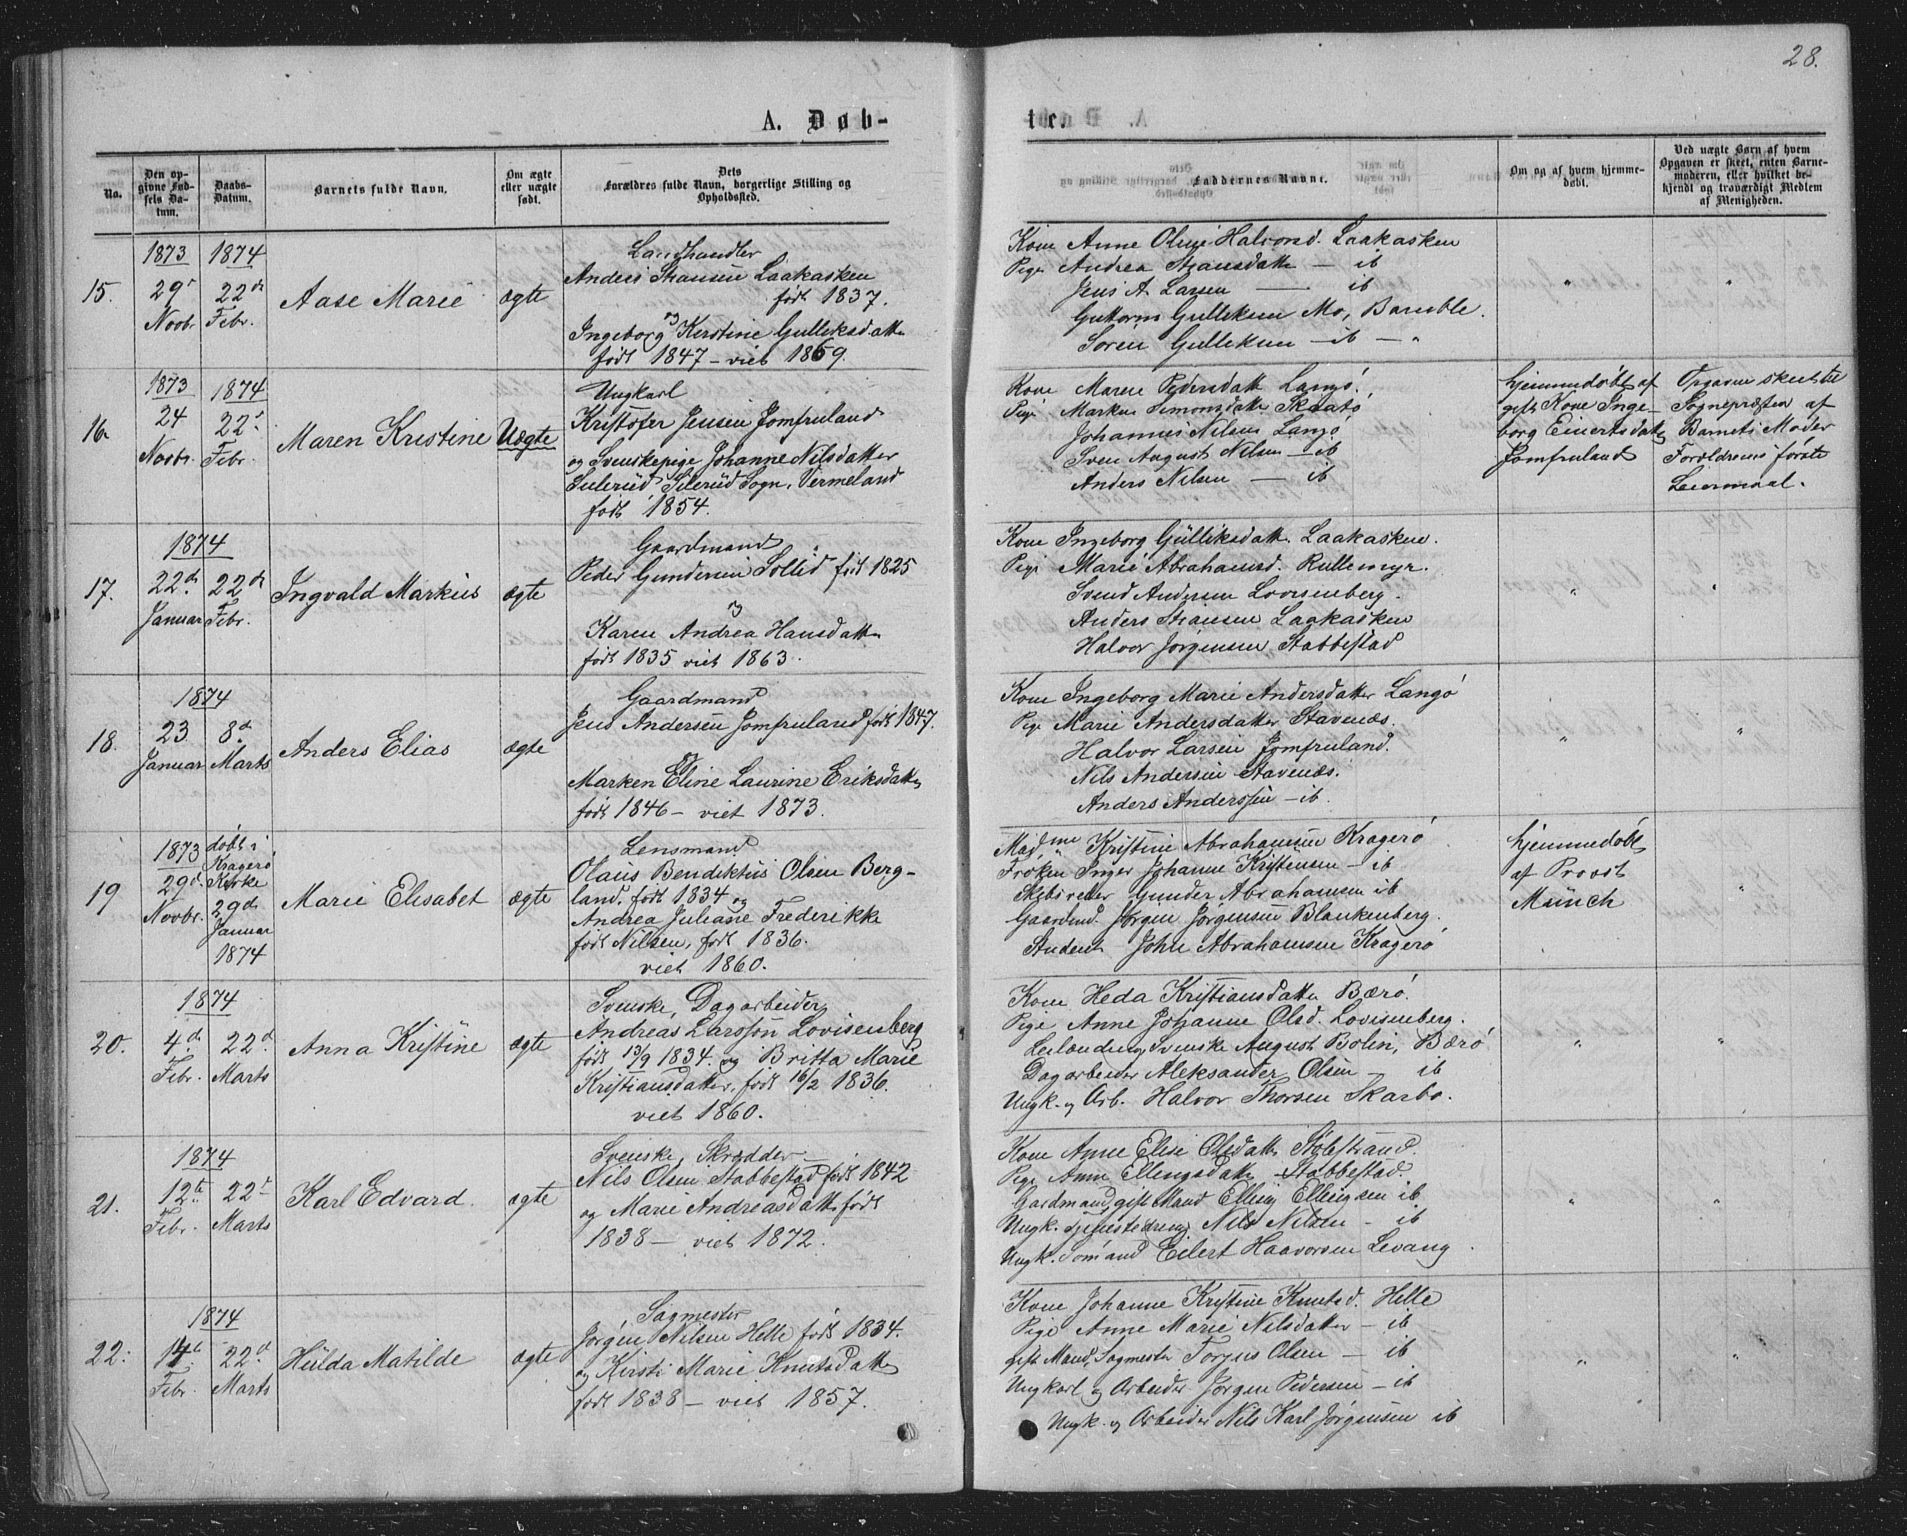 28.
A. Døb-
te.
No.
Den op-
givne Fød-
sels Da-
tum.
Daabs-
Datum.
Barnets fulde Navn.
Om ægte
eller uægte
født.
Dets
Forældres fulde Navn, borgerlige Stilling og
Opholdssted.
Faddernes Navne.
Om og af hvem hjemme-
døbt.
Ved uægte Børn af hvem
Opgaven er skeet, enten Barne-
moderen, eller hvilket be-
kjendt og troværdigt Medlem
af Menigheden.
15.
1873
29
Novbr.
1874
22d
Febr.
Aase Marie
ægte
Landhandler
Anders Laakasken
født 1837.
og
Ingeborg Kerstine Gulliksdatt.
født 1847 – viet 1869.
Kone Anne Oline Halvorsd. Laakasken
Pige Andrea datt. — ib
Jens A. Larsen — ib
Guttorm Gulliksen Mo, Bamble.
Søren Gulliksen – ib – "
"
"
16.
1873
24
Novbr.
1874
22
Febr.
Maren Kristine
Uægte
Ungkarl
Kristofer Jensen Jomfruland
og Svenskepige Johanne Nilsdatter
Silerud Sogn, Vermeland
født 1854.
Kone Maren Pedersdatt. Langö.
Pige Marken Simonsdatt. Skaatö
Johannes Nilsen Langö
Sven August Nilsen – ib
Anders Nilsen — ib
hjemmedøbt af
gift Kone Inge-
borg Einertsdatt.
Jomfruland
Opgaven skeet til
Sognepræsten af
Barnets Moder
Forældrenes første
Leiermaal.
17.
1874
22d
Januar
22d
Febr.
Ingvald Markus
ægte
Gaardmand
Peder Gundersen Sollid født 1825
og
Karen Andrea Hansdatt.
født 1835 viet 1863.
Kone Ingeborg Gulliksdatt. Laakasken.
Pige Marie Abrahamsd. Rullemyr.
Svend Andersen Lovisenberg.
Anders Laakasken
Halvor Jørgensen Stabbestad
"
"
18.
1874
23
Januar
8d
Marts
Anders Elias
ægte
Gaardmand
Jens Andersen Jomfruland født 1847.
og
Marken Eline Laurine Eriksdatt.
født 1846 – viet 1873.
Kone Ingeborg Marie Andersdatter Langö
Pige Marie Andersdatter Stavenæs.
Halvor Larsen Jomfruland.
Nils Andersen Stavenæs.
Anders Anderssen – ib.
"
"
19
1873
29d
Novbr.
døbt i
Kragerø
Kirke
29d
Januar
1874
Marie Elisabet
ægte
Lensmand
Olaus Bendiktus Olsen Berg-
land, født 1834 og
Andrea Juliane Frederikke
født Nilsen, født 1836.
viet 1860.
Madme Kristine Abrahamsen Kragerö
Frøken Inger Johanne Kristensen – ib
Skibsreder Gunder Abrahamsen ib
Gaardmd. Jørgen Jørgensen Blankenberg.
Student John Abrahamsen Kragerö
hjemmedøbt
af Provst
Münch
"
20.
1874
4d
Febr.
22d
Marts
Anna Kristine
ægte
Svenske, Dagarbeider
Andreas Larsson Lovisenberg
født 13/9 1834 og Britta Marie
Kristiansdatter, født 16/2 1836.
viet 1860.
Kone Heda Kristiansdatt. Bærö.
Pige Anne Johanne Olsd. Lovisenberg.
Leilænding Svenske August Bolin, Bærö
Dagarbeider Aleksander Olsen – ib
Ungk. og Arb. Halvor Thorsen Skarbo.
"
"
21.
1874
12te
Febr.
22
Marts
Karl Edvard
ægte
Svenske, Skrædder
Nils Olsen Stabbestad født 1842
og Marie Andreasdatt. født
1838 – viet 1872.
Kone Anne Elise Olsdatt. Stölestrand.
Pige Anne Ellingsdatt. Stabbestad.
Gardmand gift Mand Elling Ellingsen ib
Ungk. tjenestedreng Nils Nilsen – ib
Ungk. Sömand Eilert Haavorsen Levang.
"
"
22.
1874
14
Febr.
22d
Marts
Hulda Matilde
ægte
Sagmester
Jörgen Nilsen Helle født 1834.
og Kirsti Marie Knutsdatt.
født 1838 – viet 1857.
Kone Johanne Kristine Knutsd. Helle
Pige Anne Marie Nilsdatter – ib
gift Mand, Sagmester Torjus Olsen – ib
Ungkarl og Arbeider Jörgen Pedersen – ib
Ungk. og Arbeider Nils Karl Jörgensen ib
"
"